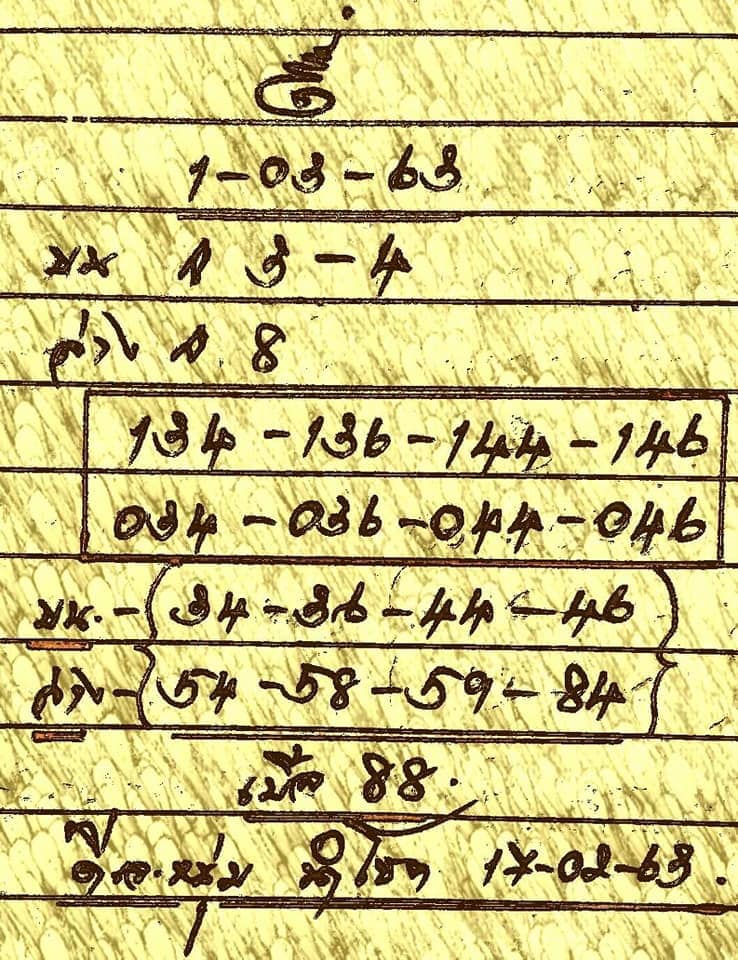 1-03-63
บน ล 3-4
ล่าง ล. 8
134-136-144-146
034-036-044-046
บน.-(34-36-44-46)
ล่าง-{54-58-59-84}
88.
นำโชค 17-02-63.